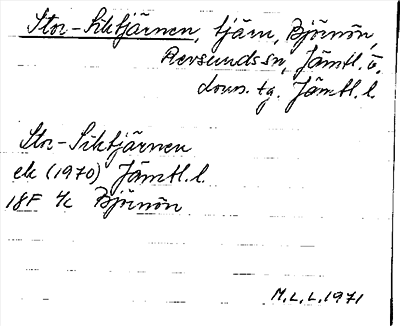 Stor-Siktjärnen, tjärn, Björnön,
Revsunds sn, Jämtl. ö.
doms. tg. Jämtl. l.
Stor-Siktjärnen
ek (1970) Jämtl. l.
18F 4c Björnön
M.L.L. 1971